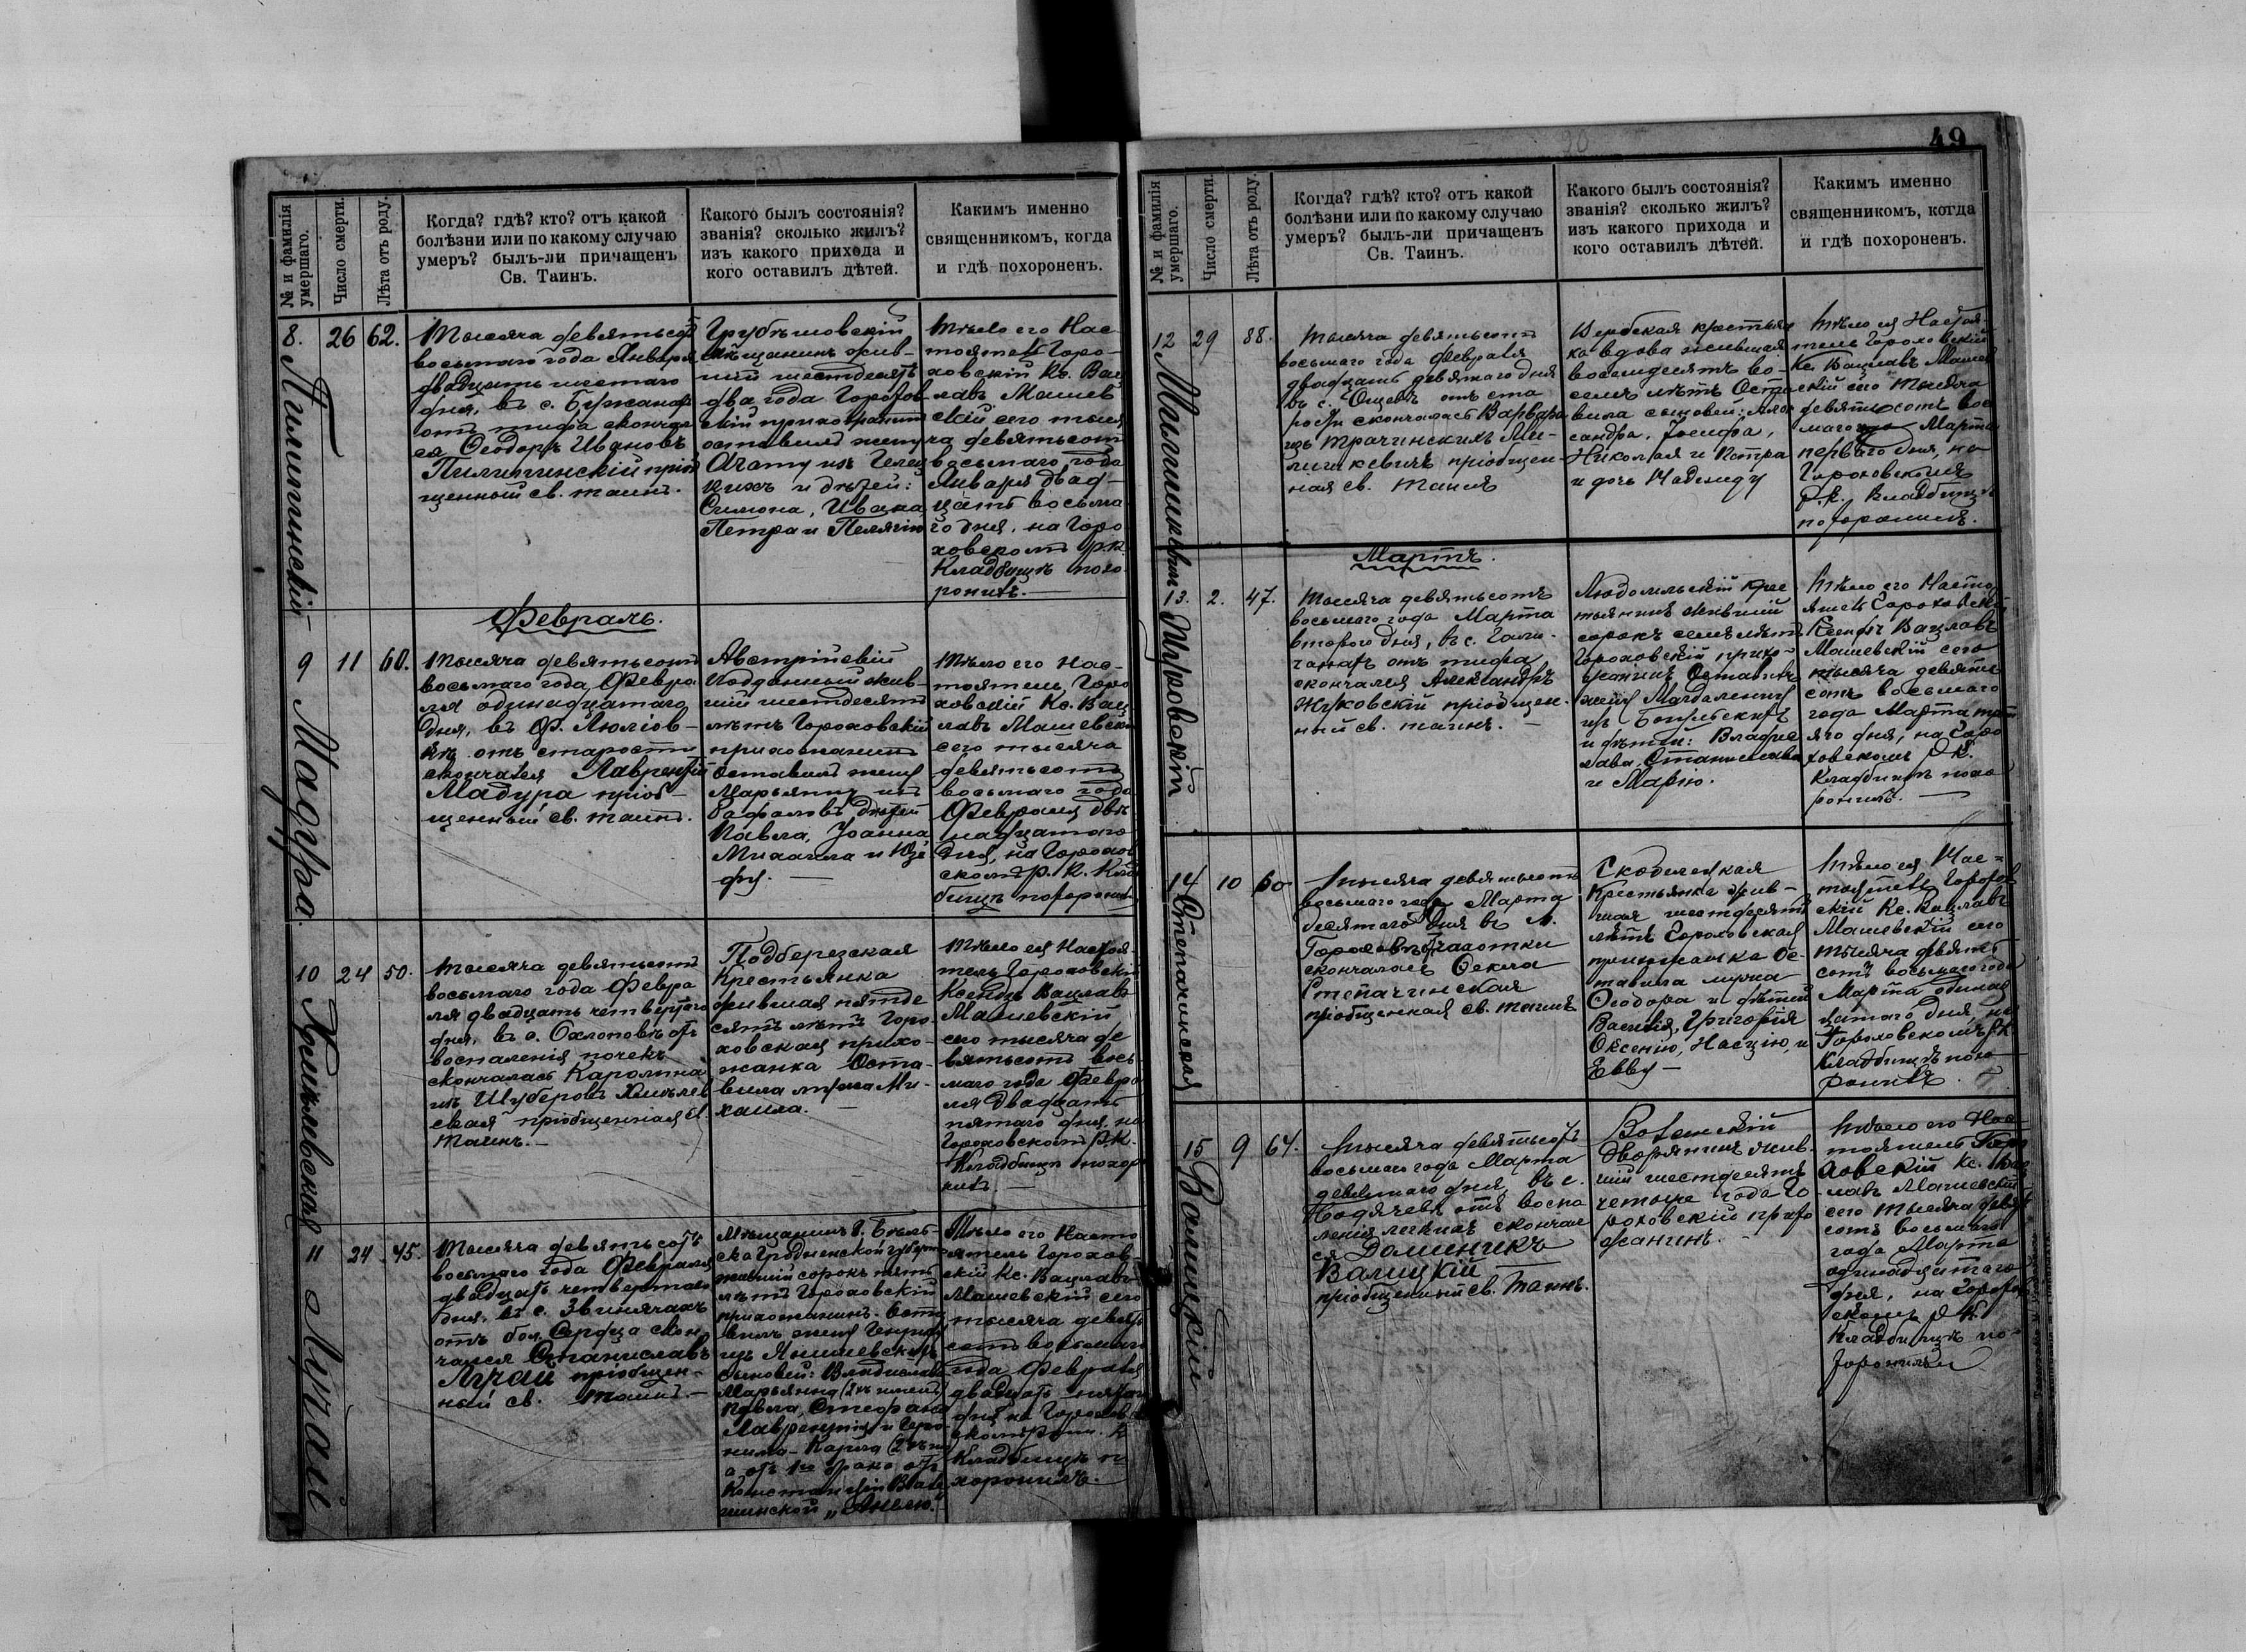 № и фамилія умершаго.
Число смерти.
Лѣта отъ роду.
Когда? гдѣ? кто? отъ какой
болѣзни или по какому случаю
умеръ? былъ-ли причащенъ
Св. Таинъ.
Какого былъ состоянія?
званія? сколько жилъ?
изъ какого прихода и
кого оставилъ дѣтей.
Какимъ именно
священникомъ, когда
и гдѣ похороненъ.
8.
26
62.
Пилипчинскій
Тысяча девятьсотъ
восьмаго года Января
двадцать шестаго
дня, въ с.
отъ тифа сконча
ся Ѳеодоръ Ивановъ
Пилипчинскій пріоб
щенный св. таинъ.
Грубѣшовскій
мѣщанинъ жив-
шій шестдесятъ
два года Горохов
скій прихожанинъ
оставилъ жену
Агату изъ
кихъ и дѣтей:
Симона, Ивана
Петра и Пелагію
Тѣло его Нас-
тоятель Горо-
ховскій Кс. Вац
лавъ Машев
скій сего тыся
ча девятьсотъ
восьмаго года
Января двад-
цать восьма
го дня, на Горо
ховскомъ р.к.
Кладбищѣ похо
ронилъ.
Февраль.
9
11
60.
Мадура.
Тысяча девятьсотъ
восьмаго года Февра
ля одинадцатаго
дня, въ ф. Люлiов-
кѣ отъ старости
скончался Лаврентій
Мадура пріоб-
щенный св. таинъ.
Австрійскій
Подданный жив-
шій шестдесятъ
лѣтъ Гороховскій
прихожанинъ
Оставилъ жену
Марьянну изъ
дѣтей
Павла, Іоанна
Михаила и Юзе
фу.
Тѣло его Нас-
тоятель Горо
ховскій Кс. Вац
лавъ Машевскій
сего тысяча
девятьсотъ
восьмаго года
Февраля двѣ
надцатаго
дня, на Горохов
скомъ р. к. Клад
бищѣ похоронилъ
10
24
50.
Хмѣлевская
Тысяча девятьсотъ
восьмаго года Февра
ля двадцать четвертаго
дня, въ с. Охлоповѣ отъ
воспаленія почекъ
скончалась Каролина
изъ Шуберовъ Хмѣлев
ская пріобщенная св.
таинъ.
Подберезская
Крестьянка
жившая пятде
сятъ лѣтъ Горо-
ховская прихо-
жанка Оста-
вила мужа Ми-
хаила.
Тѣло ея Настоя-
тель Гороховскій
Ксендзъ Вацлавъ
Машевскій
сего тысяча де
вятьсотъ вось-
маго года Февра
ля двадцать
пятаго дня, на
Гороховскомъ р.к.
Кладбищѣ похоро
нилъ.
11
24
45.
Лучай
Тысяча девятьсотъ
восьмаго года Февраля
двадцать четвертаго
дня, въ с. Звинячахъ
отъ бол. Сердца скон
чался Станиславъ
Лучай пріобщен-
ный св. таинъ.
Мѣщанинъ г. Бѣль
ска Гродненской губерніи
жившій сорокъ пять
лѣтъ Гороховскій
прихожанинъ. Оста
вилъ жену
изъ Янишевскихъ
сыновей: Владислава
Марьянна (2хъ именъ)
Павла, Стефана
Лаврентія и Геро
нима-Карла
а отъ 1го брака отъ
Констанціи
шинской „Анелю.“
Тѣло его Насто
ятель Горохов-
скій Кс. Вацлавъ
Машевскій сего
тысяча девять
сотъ восьмаго
года Февраля
двадцать пятаго
дня на Горохов
скомъ Рим. К
Кладбищѣ по
хоронилъ.
49
№ и фамилія умершаго.
Число смерти.
Лѣта отъ роду.
Когда? гдѣ? кто? отъ какой
болѣзни или по какому случаю
умеръ? былъ-ли причащенъ
Св. Таинъ.
Какого былъ состоянія?
званія? сколько жилъ?
изъ какого прихода и
кого оставилъ дѣтей.
Какимъ именно
священникомъ, когда
и гдѣ похороненъ.
12
29
88.
Тысяча девятьсотъ
восьмаго года Февраля
двадцать девятаго дня
въ с. Ощевѣ отъ ста
рости скончалась Варвара
изъ Трачинскихъ Ми-
пріобщен-
ная св. таинъ
Вербская крестьян
ка вдова жившая
восемдесятъ во-
семь лѣтъ Оста
вила сыновей: Алек
сандра, Іосифа,
Николая и Петра
и дочь Надежду
Тѣло ея Настоя-
тель Гороховскій
Кс. Вацлавъ Машев
скій сего тысяча
девятьсотъ вос
маго года Марта
перваго дня, на
Гороховскомъ
р.к. Кладбищѣ
похоронилъ.
Мартъ.
13.
2.
47.
Жуковскій
Тысяча девятьсотъ
восьмаго года Марта
второго дня, въ с. Гали-
чанахъ отъ тифа
скончался Александръ
Жуковскій пріобщен-
ный св. таинъ.
Людомльскій крес
тьянинъ жившій
сорокъ семь лѣтъ
Гороховскій прихо-
жанинъ Оставилъ
жену Магдаленну
изъ
и дѣтей: Владис
лава, Станислава
и Марію.
Тѣло его Насто
ятель Гороховскій
Ксендзъ Вацлавъ
Машевскій сего
тысяча девять
сотъ восьмаго
года Марта треть
яго дня, на Горо
ховскомъ р.к.
Кладбищѣ похо
ронилъ.
14
10
60
Степанчинская
Тысяча девятьсотъ
восьмаго года Марта
десятаго дня въ м.
Гороховѣ чахотки
скончалась Ѳекла
Степанчинская
пріобщенная св. таинъ
Скобелецкая
Крестьянка жив-
шая шестдесятъ
лѣтъ Гороховская
прихожанка Ос-
тавила мужа
Ѳеодора и дѣтей
Василія, Григорія
Оксенію, Насцю, и
Евву
Тѣло ея Нас=
тоятель Горохов
скій Кс. Вацлавъ
Машевскій сего
тысяча девять
сотъ восьмаго года
Марта одинад
цатаго дня, на
Гороховскомъ р.к.
Кладбищѣ похо
ронилъ.
15
9
64.
Валицкій
Тысяча девятьсотъ
восьмаго года Марта
девятаго дня, въ с.
отъ воспа
ленія легкихъ скончал
ся Доминикъ
Валицкій
пріобщенный св. таинъ.
Дворянинъ жив-
шій шестдесятъ
четыре года Го
роховскій прихо
жанинъ.
Тѣло его Нас
тоятель Горо
ховскій Кс. Вац
лавъ Машевскій
сего тысяча девять
сотъ восьмаго
года Марта
одинадцатаго
дня, на Горохов
скомъ р.к.
Кладбищѣ по-
хоронилъ